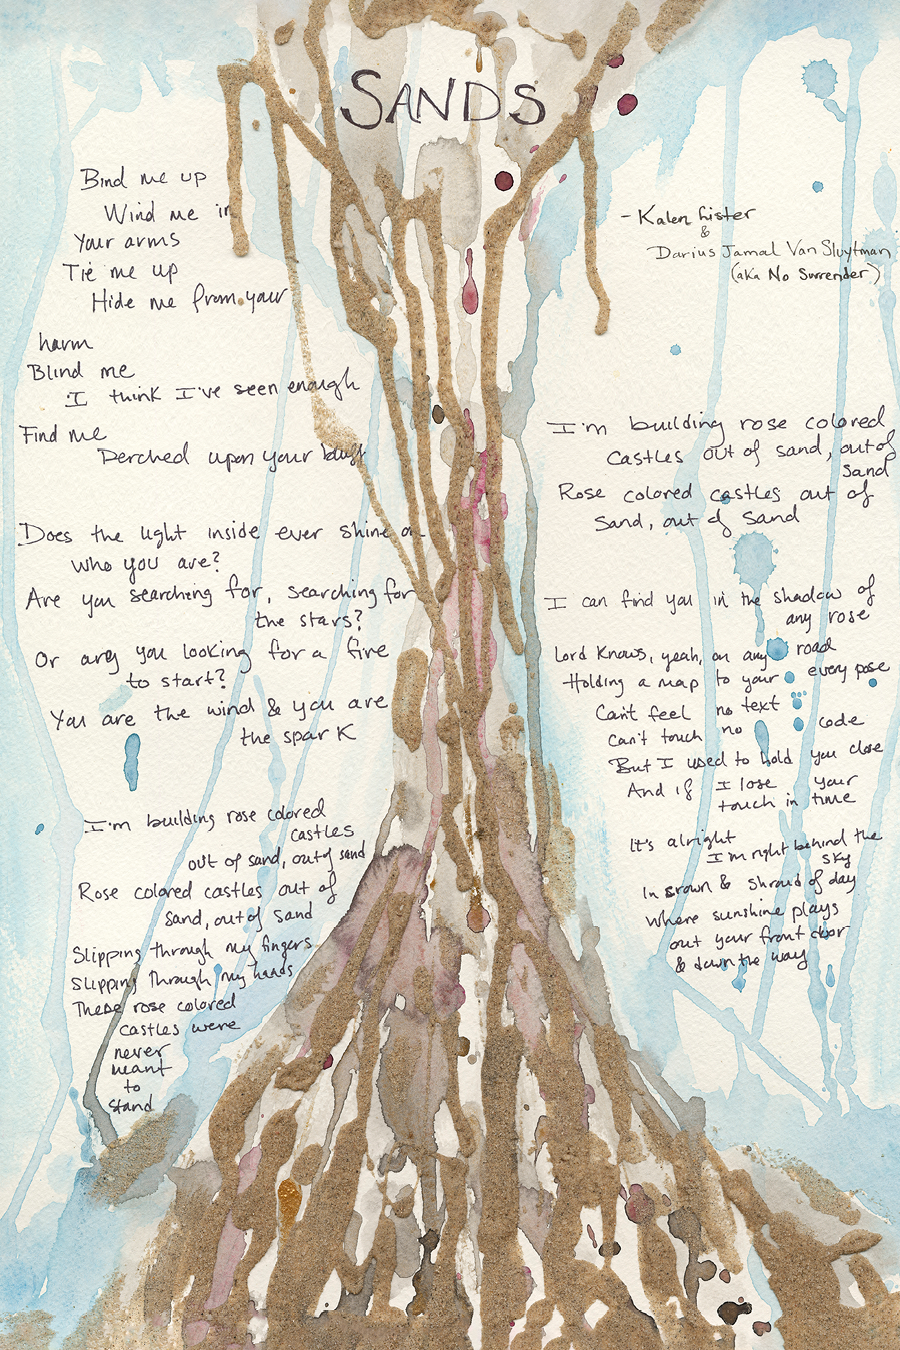 SANDS
Bind me up
Wind me in
Your arms
Tie me up
Hide me from your
harm
Blind me
I think I've seen enough
Find me
Perched upon your bluff
Does the light inside ever shine on
who you are?
Are you searching for, searching for
the stars?
Or are you looking for a fire
to start?
You are the wind & you are
the spark
I'm building rose colored
castles
out of sand, out of sand
Rose colored castles out of
sand, out of sand
Slipping through my fingers
Slipping through my hands
These rose colored
castles were
never
meant
to
stand
- Kalen Lister
&
Darius Jamal VanSluytman
(aka No Surrender)
I'm building rose colored
castles out of sand, out of
sand
Rose colored castles out of
sand, out of sand
I can find you in the shadow of
any rose
Lord knows, yeah, on any road
Holding a map to your every pose
Can't feel no text
Can't touch no code
But I used to hold you close
And if I lose your
touch in time
It's alright
I'm right behind the
sky
In & shroud of day
Where sunshine plays
out your front door
& down the way